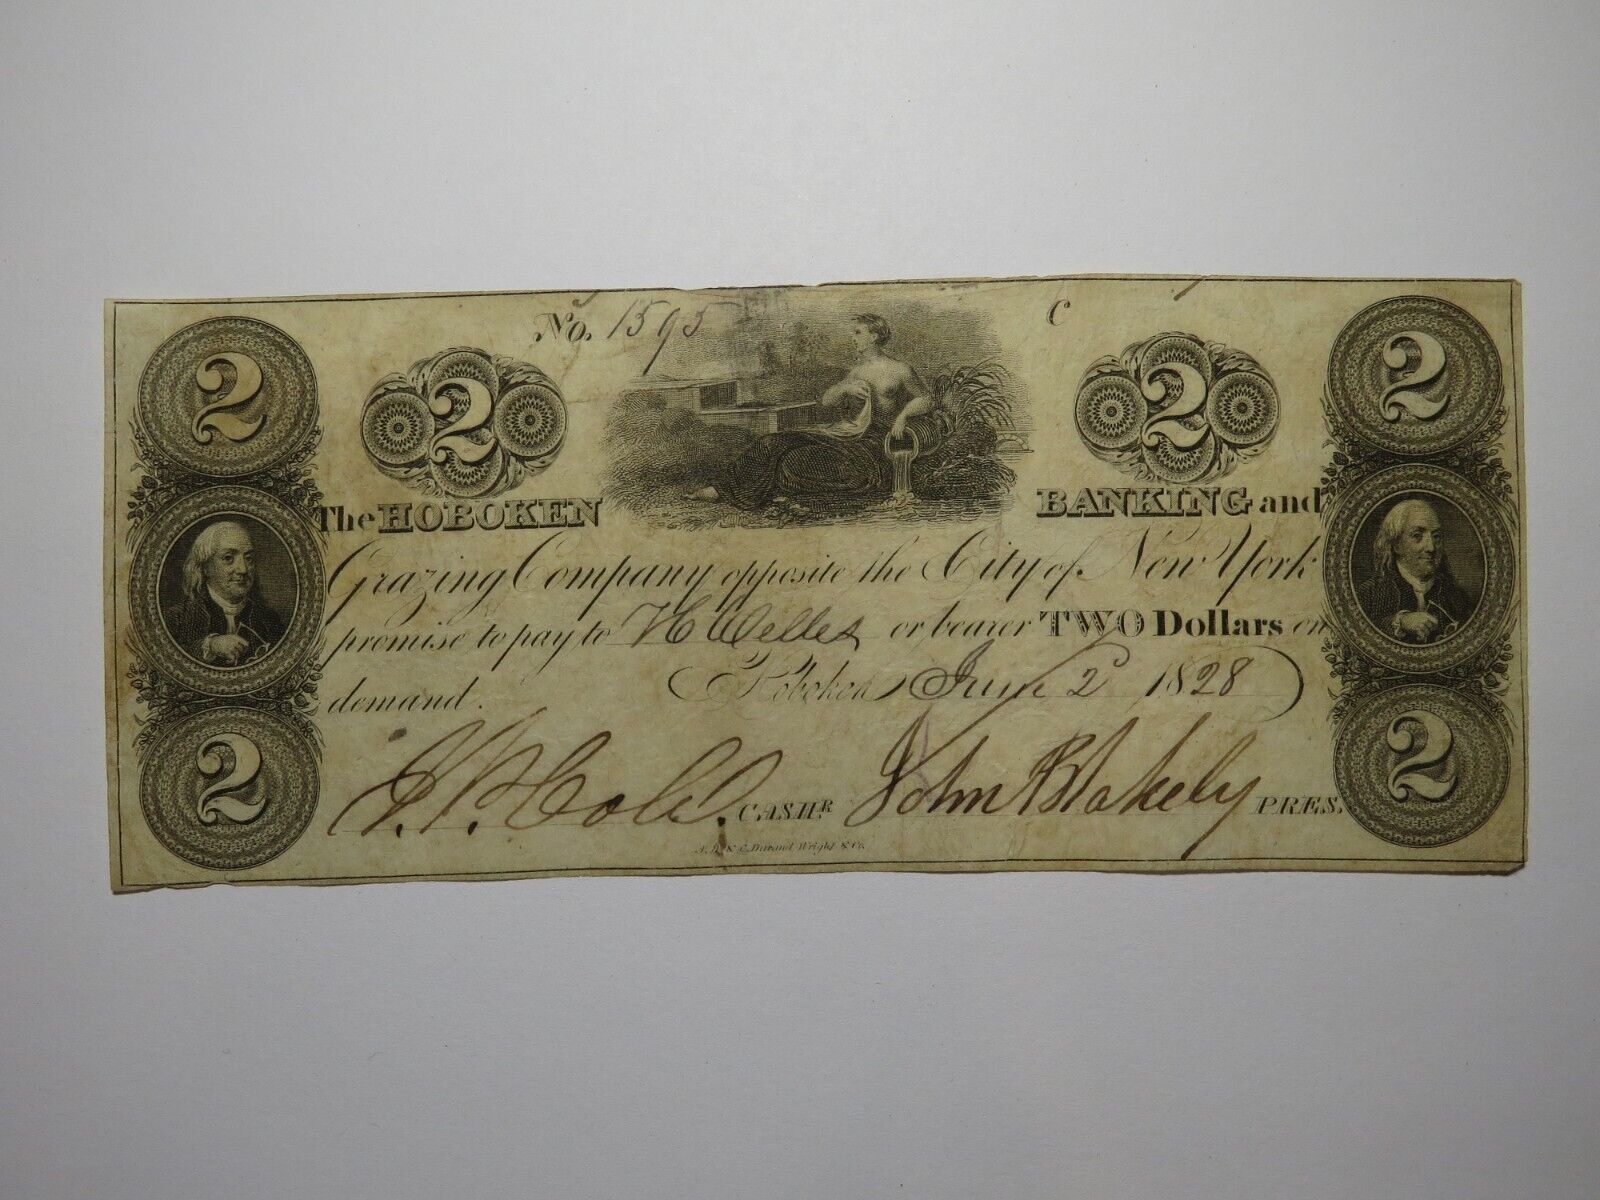 No. 1595
C
2 2 2 2
The HOBOKEN BANKING and
Grazing Company opposite the City of New York
promise to pay to H Welles or bearer TWO Dollars on
demand. Hoboken June 2 1828
CASHR. John Blakely PRES.
2 2
A.B. & C. Durand, Wright & Co.